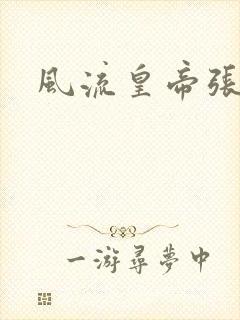 風流皇帝張
一游尋夢中